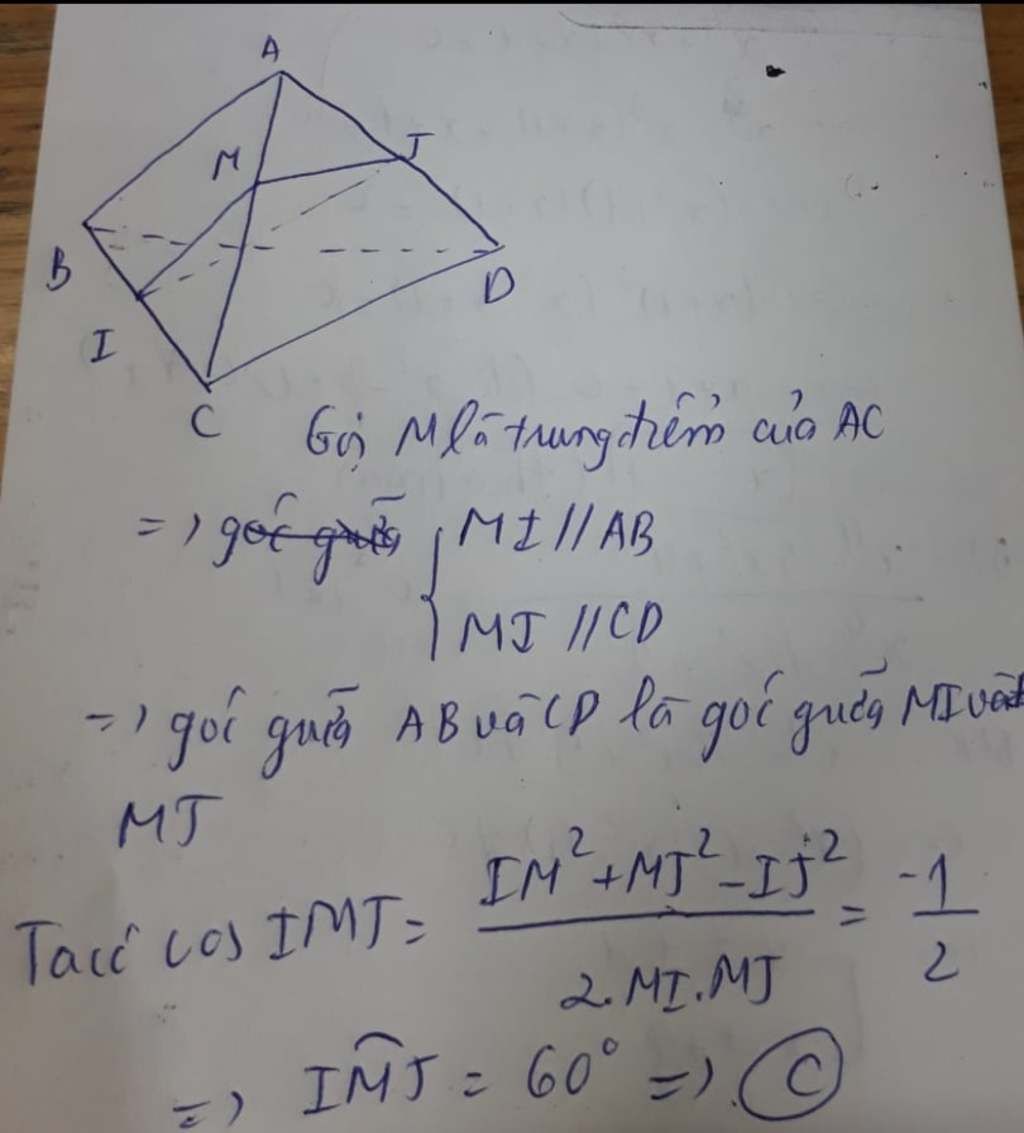 A
M
J
B
D
I
C
Gọi M là trung điểm của AC
=> góc giữa { MI // AB
MJ // CD
=> góc giữa AB và CD là góc giữa MI và
MJ
Ta có cos IMJ = (IM² + MJ² - IJ²) / (2.MI.MJ) = -1/2
=> IMJ = 60° => C